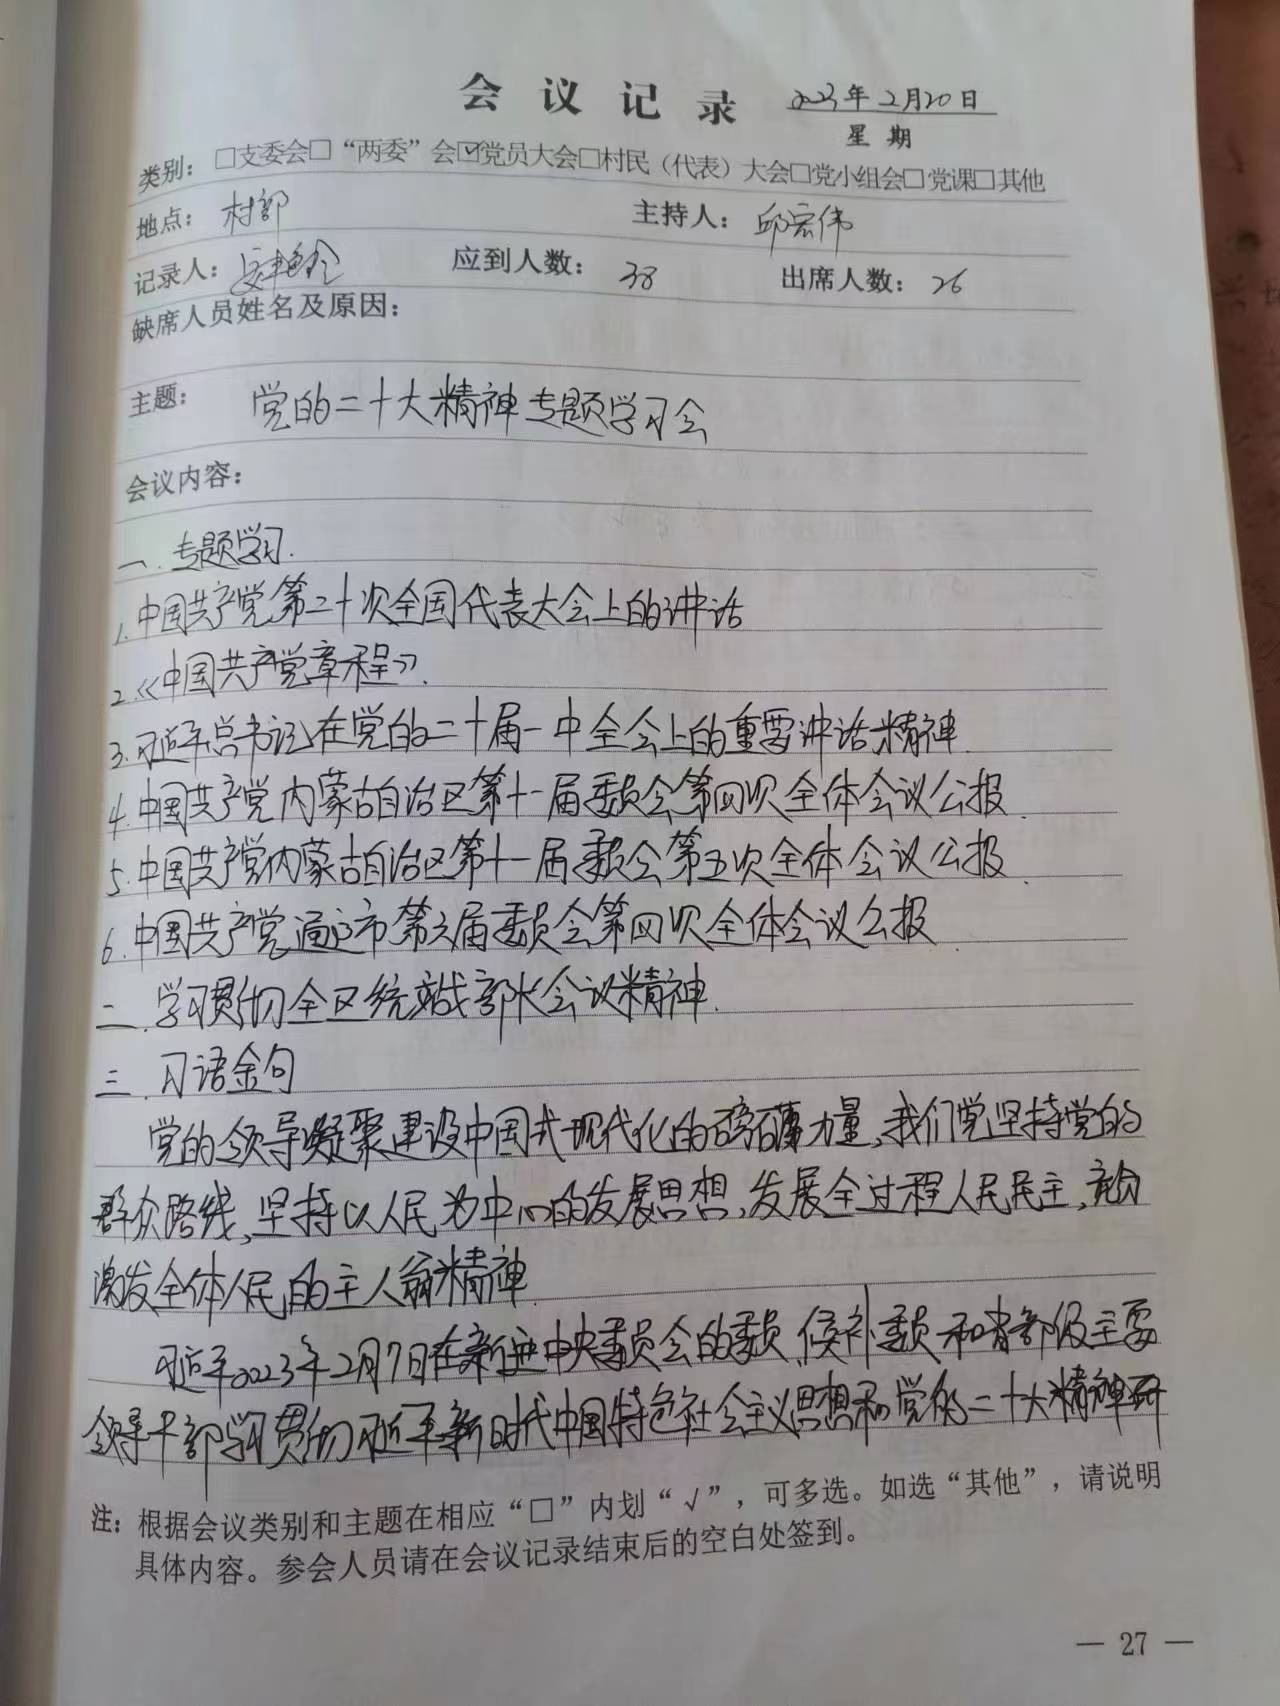 会议记录 2023年2月20日
星期
类别：□支委会□“两委”会☑党员大会□村民（代表）大会□党小组会□党课□其他
地点：村部 主持人：邱宏伟
记录人： 应到人数：38 出席人数：26
缺席人员姓名及原因：
主题：党的二十大精神专题学习会
会议内容：
一.专题学习.
1.中国共产党第二十次全国代表大会上的讲话
2.《中国共产党章程》.
3.习近平总书记在党的二十届一中全会上的重要讲话精神.
4.中国共产党内蒙古自治区第十一届委员会第四次全体会议公报.
5.中国共产党内蒙古自治区第十一届委员会第五次全体会议公报.
6.中国共产党通辽市第六届委员会第四次全体会议公报.
二.学习贯彻全区统战部长会议精神.
三.习语金句
党的领导凝聚建设中国式现代化的磅礴力量,我们党坚持党的
群众路线,坚持以人民为中心的发展思想,发展全过程人民民主,充分
激发全体人民的主人翁精神.
习近平2023年2月7日在新进中央委员会的委员、候补委员和省部级主要
领导干部学习贯彻习近平新时代中国特色社会主义思想和党的二十大精神研
注：根据会议类别和主题在相应“□”内划“√”，可多选。如选“其他”，请说明
具体内容。参会人员请在会议记录结束后的空白处签到。
— 27 —